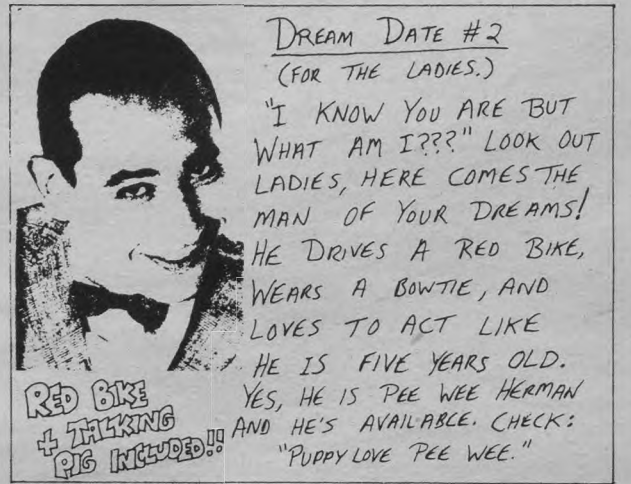 DREAM DATE #2
(FOR THE LADIES.)
"I KNOW YOU ARE BUT
WHAT AM I???" LOOK OUT
LADIES, HERE COMES THE
MAN OF YOUR DREAMS!
HE DRIVES A RED BIKE,
WEARS A BOWTIE, AND
LOVES TO ACT LIKE
HE IS FIVE YEARS OLD.
YES, HE IS PEE WEE HERMAN
AND HE'S AVAILABLE. CHECK:
"PUPPY LOVE PEE WEE."
RED BIKE
+ TALKING
PIG INCLUDED!!